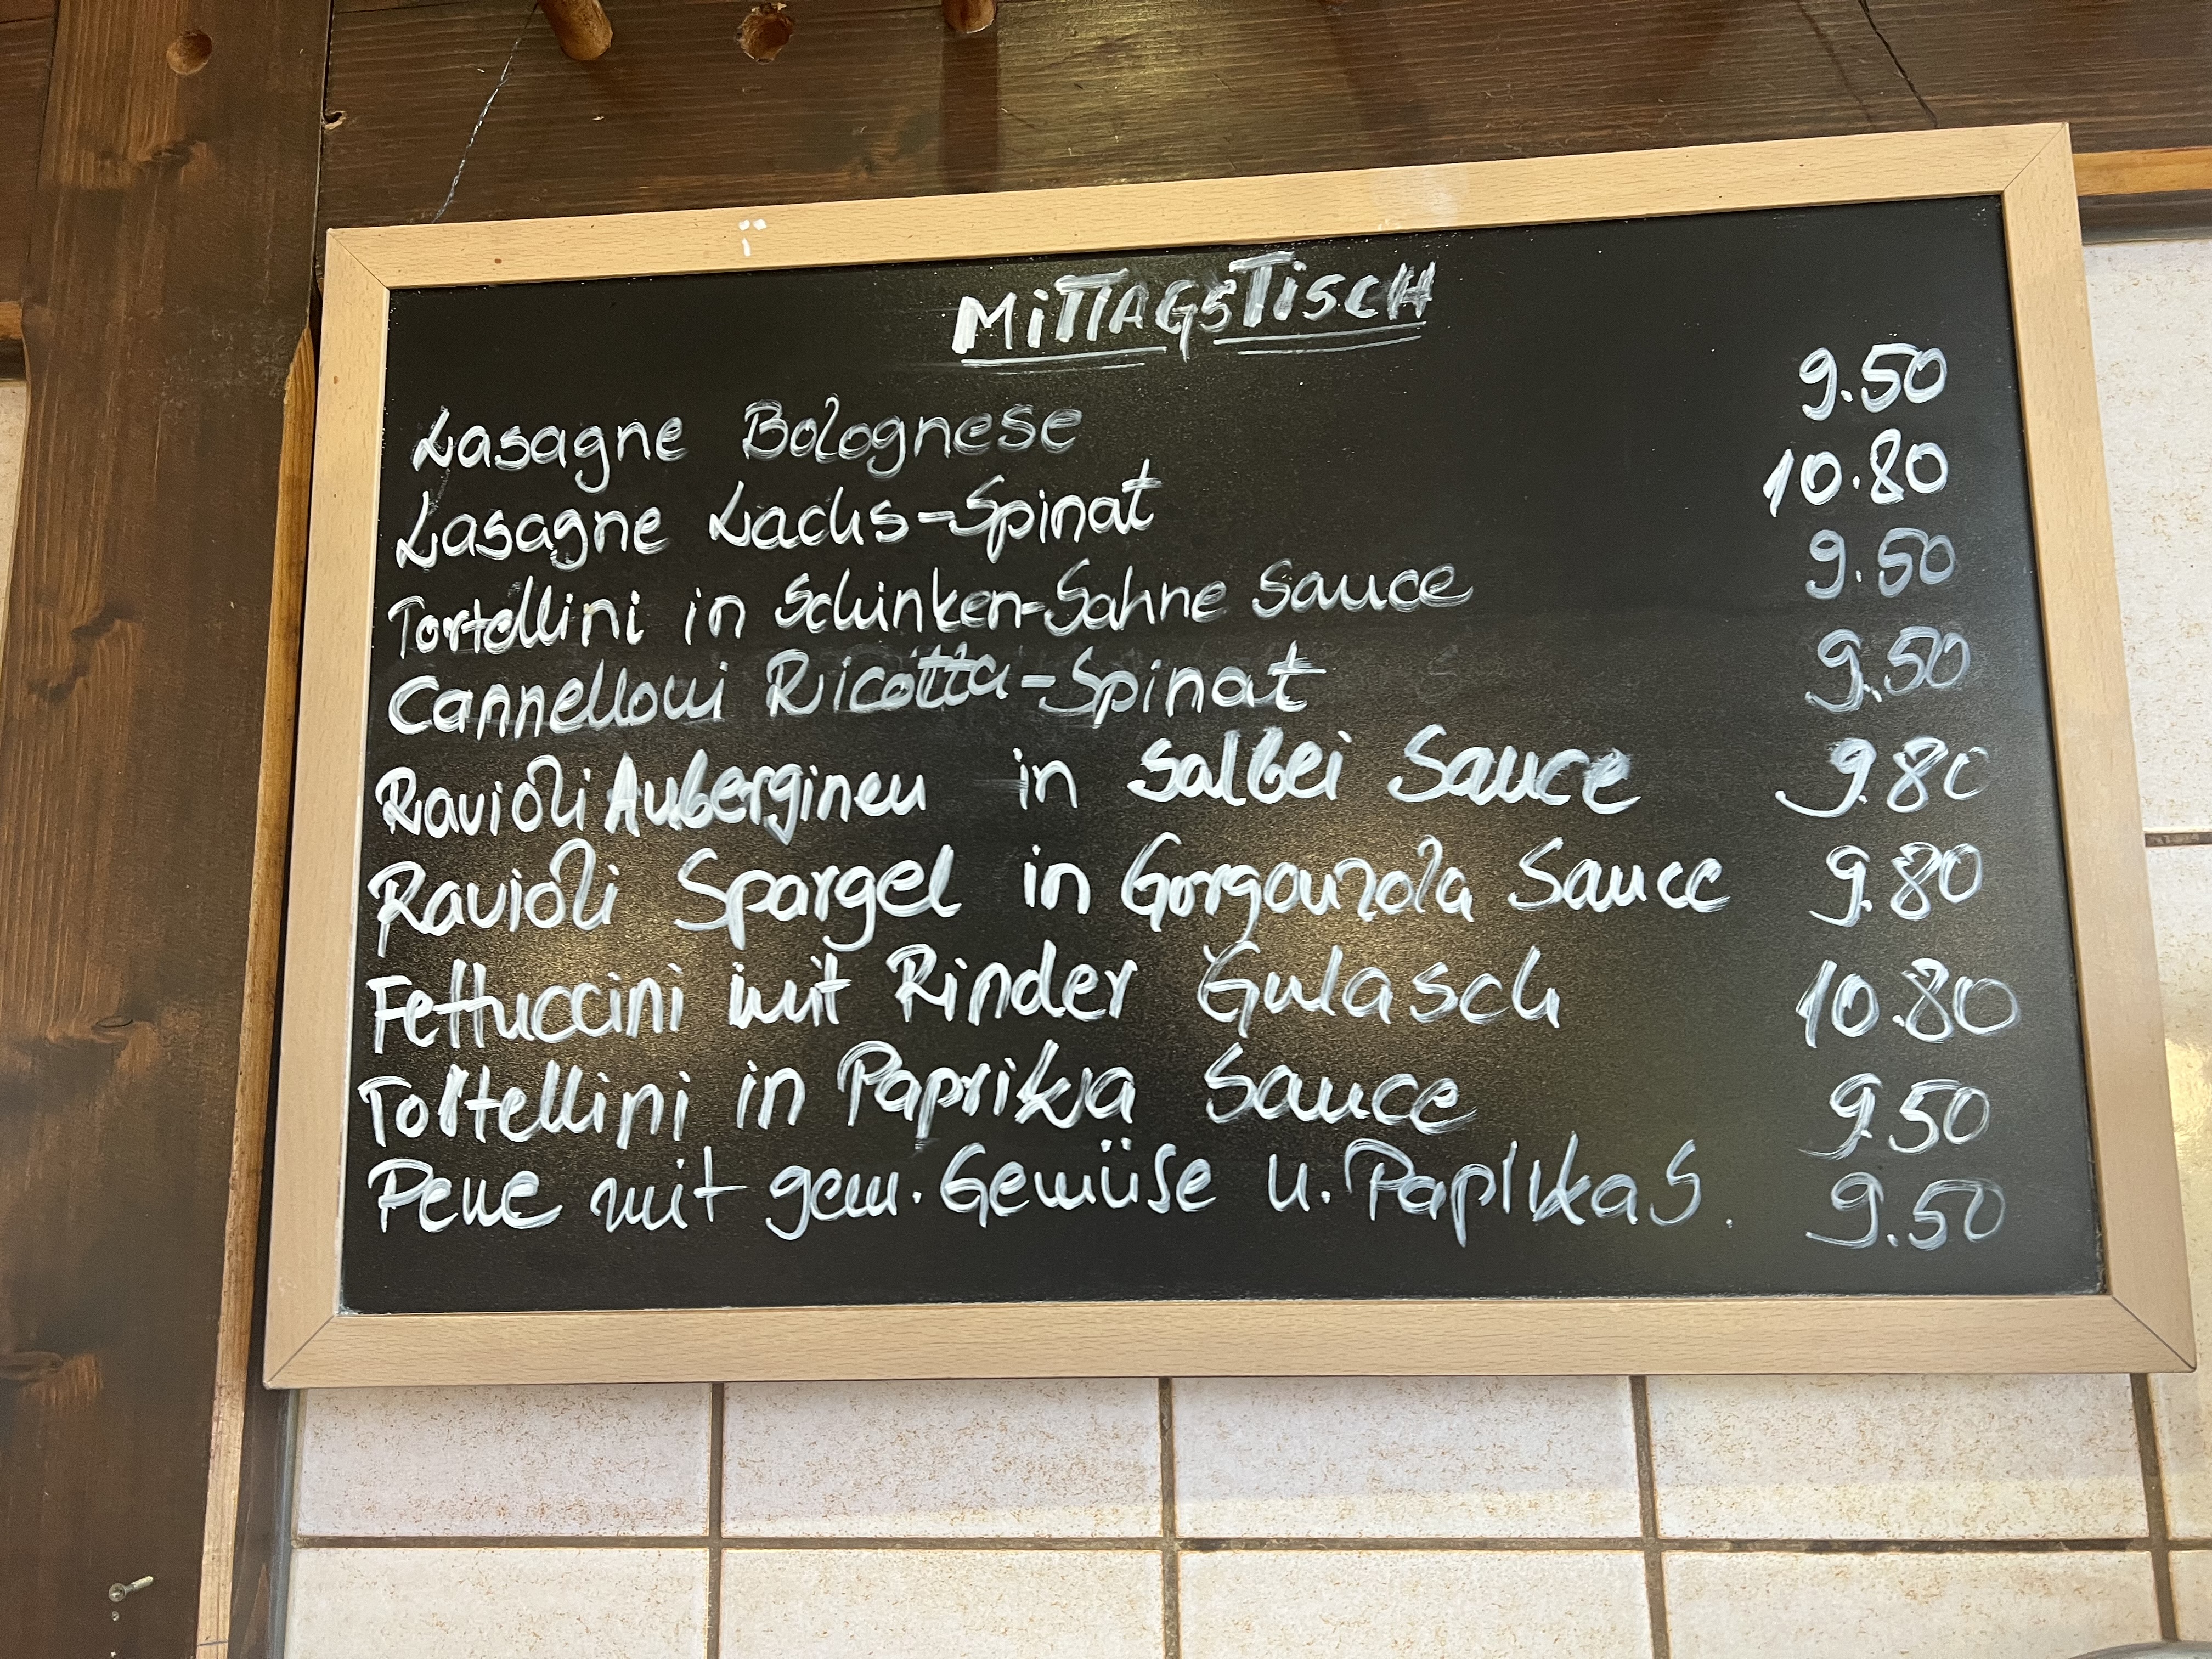 MiTTAGSTiSCH
Lasagne Bolognese 9.50
Lasagne Lachs-Spinat 10.80
Tortellini in Schinken-Sahne Sauce 9.50
Cannelloni Ricotta-Spinat 9.50
Ravioli Auberginen in Salbei Sauce 9.80
Ravioli Spargel in Gorgonzola Sauce 9.80
Fettuccini mit Rinder Gulasch 10.80
Tortellini in Paprika Sauce 9.50
Pene mit gem. Gemüse u. Paprika S. 9.50